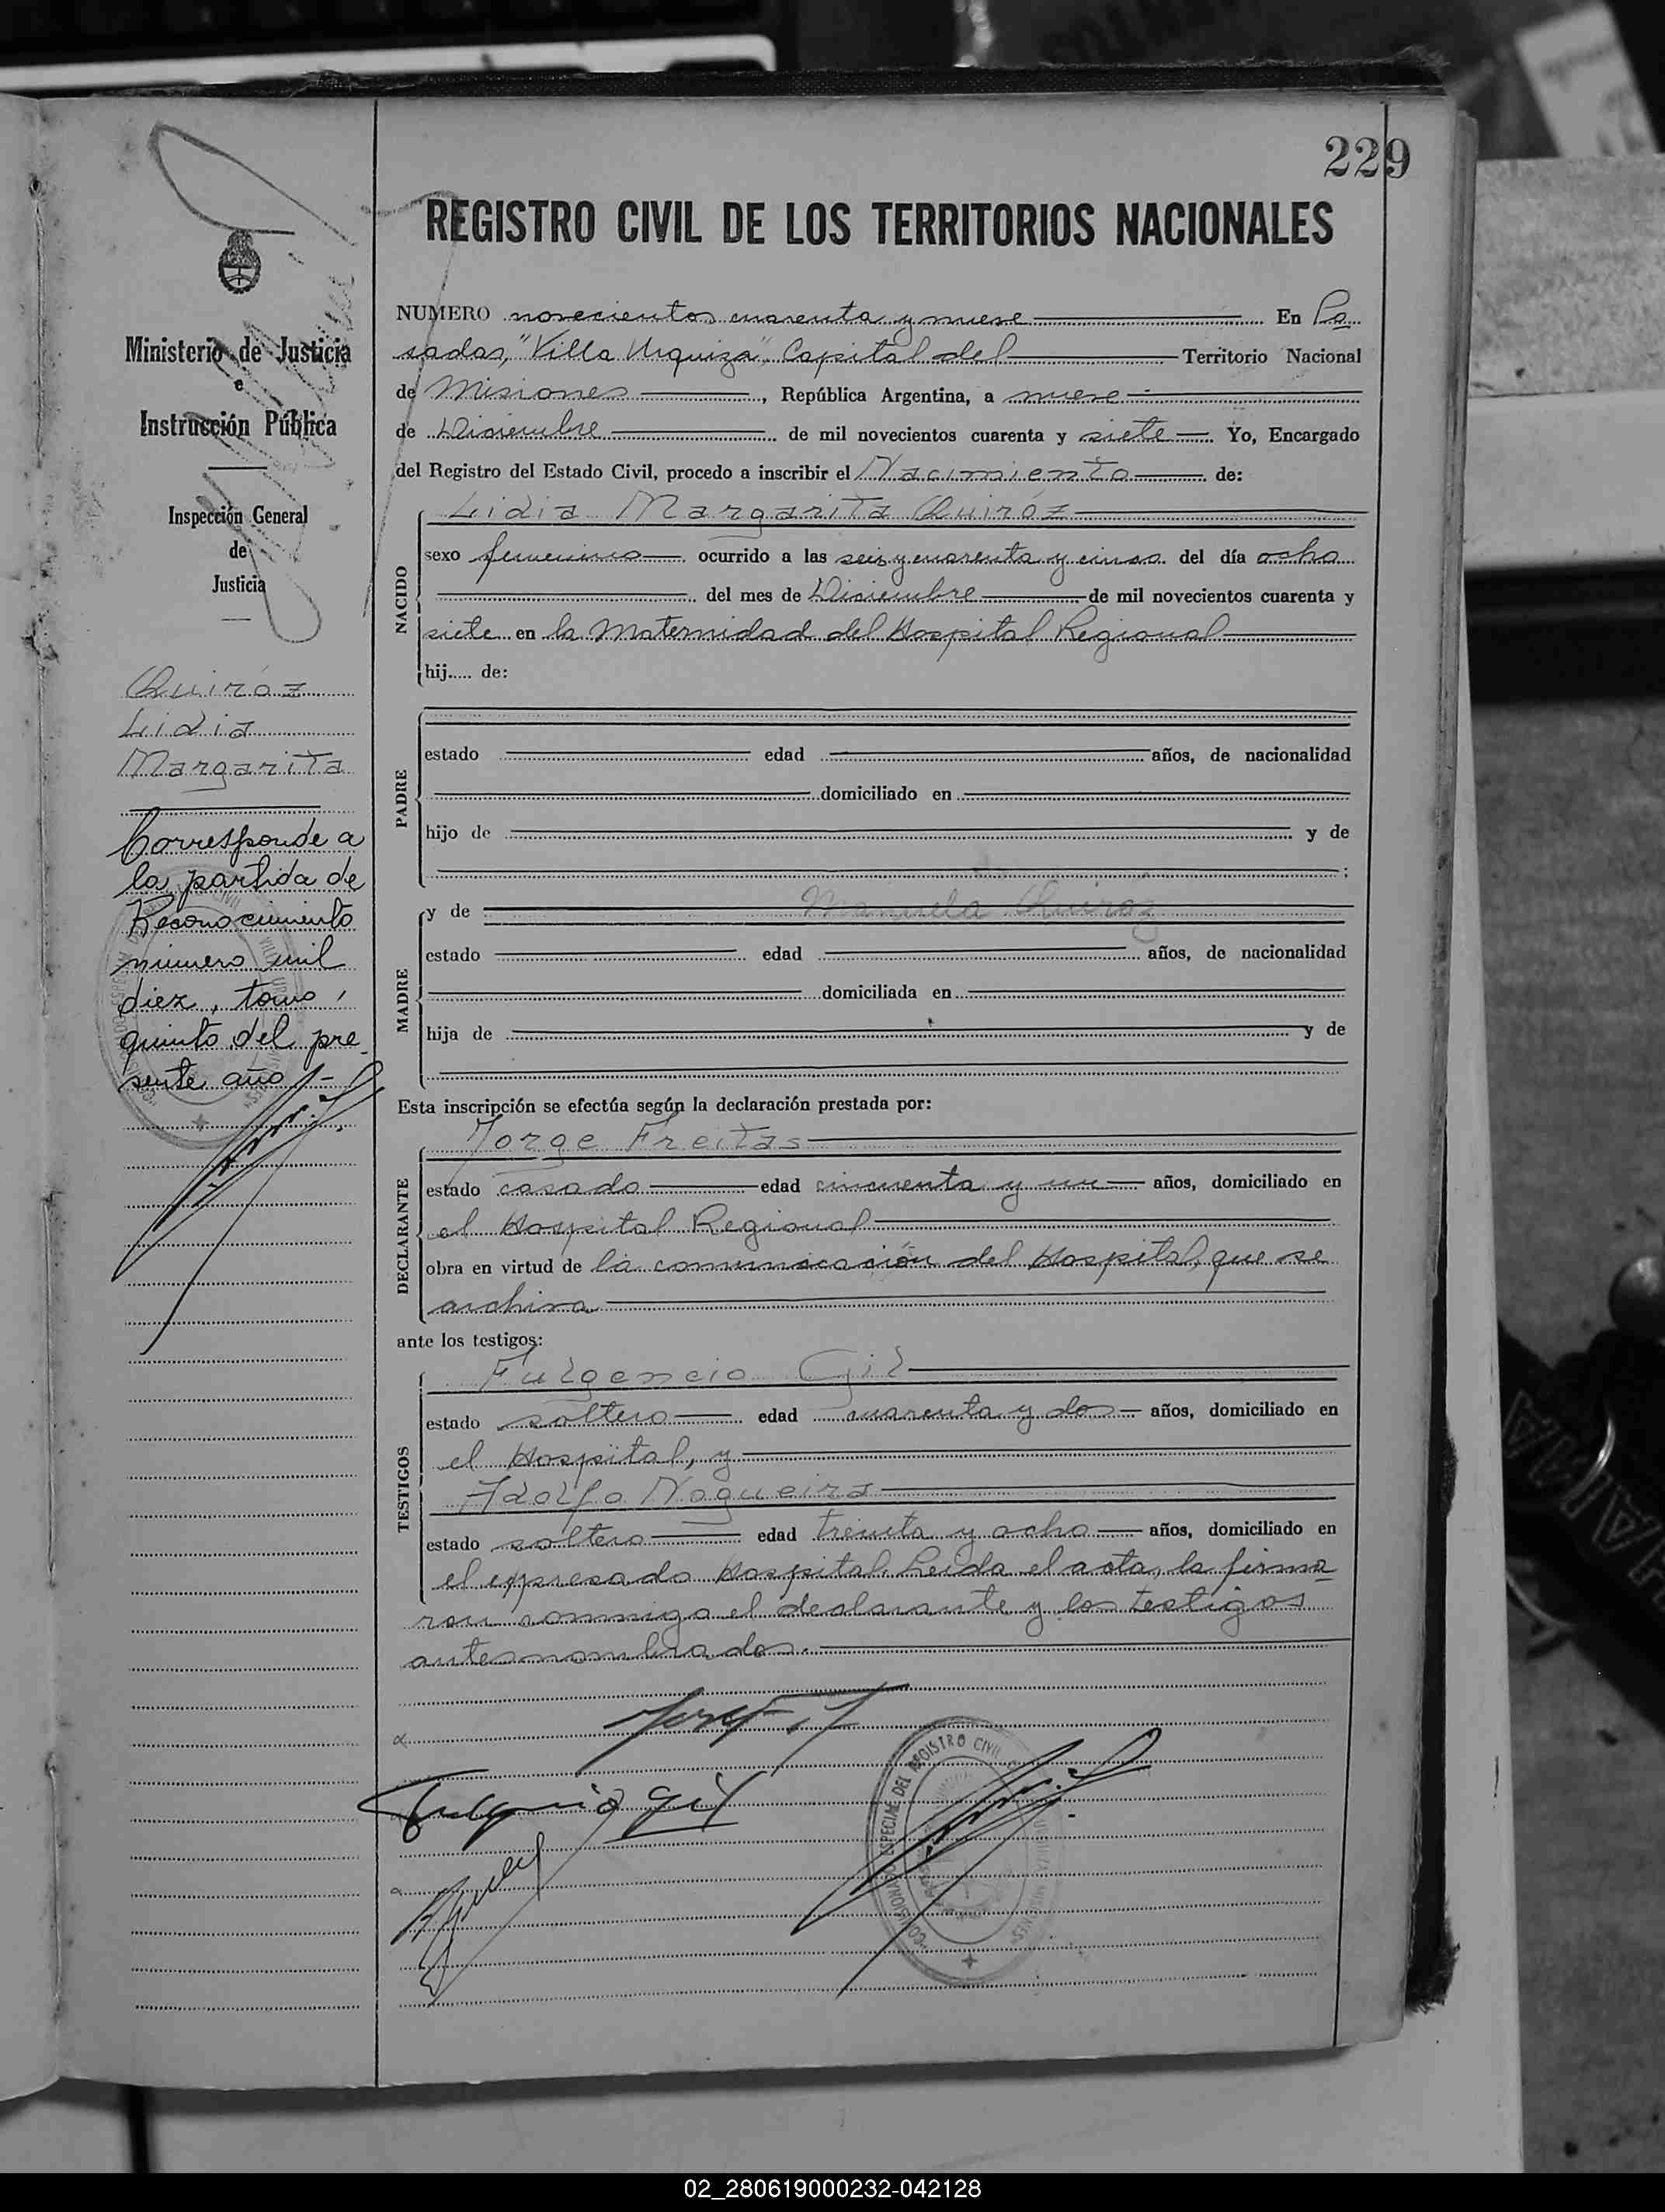 229
REGISTRO CIVIL DE LOS TERRITORIOS NACIONALES
Ministerio de Justicia
e
Instrucción Pública
Inspección General
de
Justicia
Quiróz
Lidia
Margarita
Corresponde a
la partida de
Reconocimiento
número mil
diez, tomo
quinto del pre-
sente año.-
NUMERO novecientos cuarenta y nueve En Po
sadas, "Villa Urquiza", Capital del Territorio Nacional
de Misiones, República Argentina, a nueve
de Diciembre de mil novecientos cuarenta y siete Yo, Encargado
del Registro del Estado Civil, procedo a inscribir el Nacimiento de:
NACIDO
Lidia Margarita Quiróz
sexo femenino ocurrido a las seis y cuarenta y cinco del día ocho
del mes de Diciembre de mil novecientos cuarenta y
siete en la Maternidad del Hospital Regional
hij..... de:
PADRE
estado edad años, de nacionalidad
domiciliado en
hijo de y de
;
MADRE
y de Manuela Quiroz
estado edad años, de nacionalidad
domiciliada en
hija de y de
Esta inscripción se efectúa según la declaración prestada por:
DECLARANTE
Jorge Freitas
estado casado edad cincuenta y un años, domiciliado en
el Hospital Regional
obra en virtud de la comunicación del Hospital, que se
archiva
ante los testigos:
TESTIGOS
Fulgencio Gil
estado soltero edad cuarenta y dos años, domiciliado en
el Hospital, y
Adolfo Nogueira
estado soltero edad treinta y ocho años, domiciliado en
el expresado Hospital. Leída el acta, la firma-
ron conmigo el declarante y los testigos
antes nombrados.
Fulgencio Gil
COMISIONADO ESPECIAL DEL REGISTRO CIVIL
02_280619000232-042128